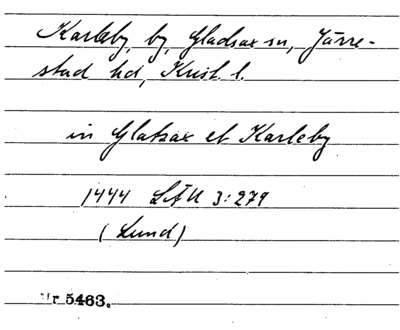 Karleby, by, Gladsax sn, Järre-
stad hd, Krist. l.
in Glatsax et Karleby
1444 LÄU 3:279
(Lund)
Nr 5463.